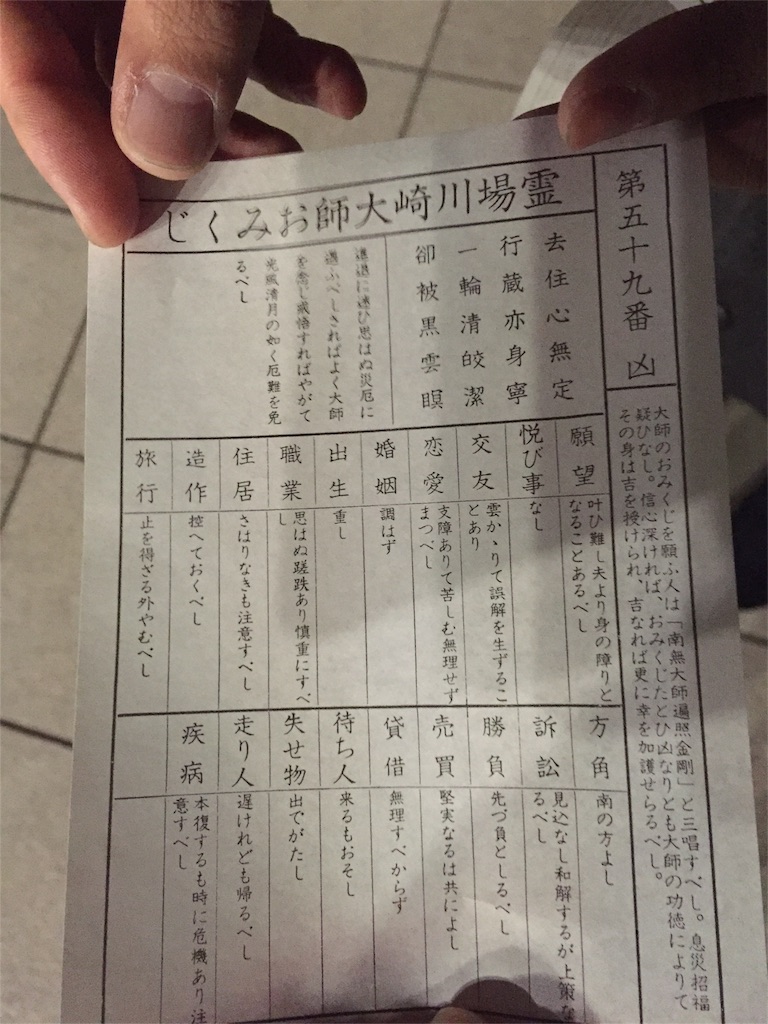 第五十九番 凶
大師のおみくじを願ふ人は「南無大師遍照金剛」と三唱すべし。息災招福
疑ひなし。信心深ければ、おみくじたとひ凶なりとも大師の功徳によりて
その身は吉を授けられ、吉なれば更に幸を加護せらるべし。
霊場川崎大師おみくじ
去住心無定
行蔵亦身寧
一輪清皎潔
却被黒雲瞑
進退に迷ひ思はぬ災厄に
遇ふべしさればよく大師
を念し戒悟すればやがて
光風清月の如く厄難を免
るべし
願望
叶ひ難し夫より身の障りと
なることあるべし
悦び事
なし
交友
雲かゝりて誤解を生ずるこ
とあり
恋愛
支障ありて苦しむ無理せず
まつべし
婚姻
調はず
出生
重し
職業
思はぬ蹉跌あり慎重にすべ
し
住居
さはりなきも注意すべし
造作
控へておくべし
旅行
止を得ざる外やむべし
方角
南の方よし
訴訟
見込なし和解するが上策な
るべし
勝負
先づ負としるべし
売買
堅実なるは共によし
貸借
無理すべからず
待ち人
来るもおそし
失せ物
出でがたし
走り人
遅けれども帰るべし
疾病
本復するも時に危機あり注
意すべし